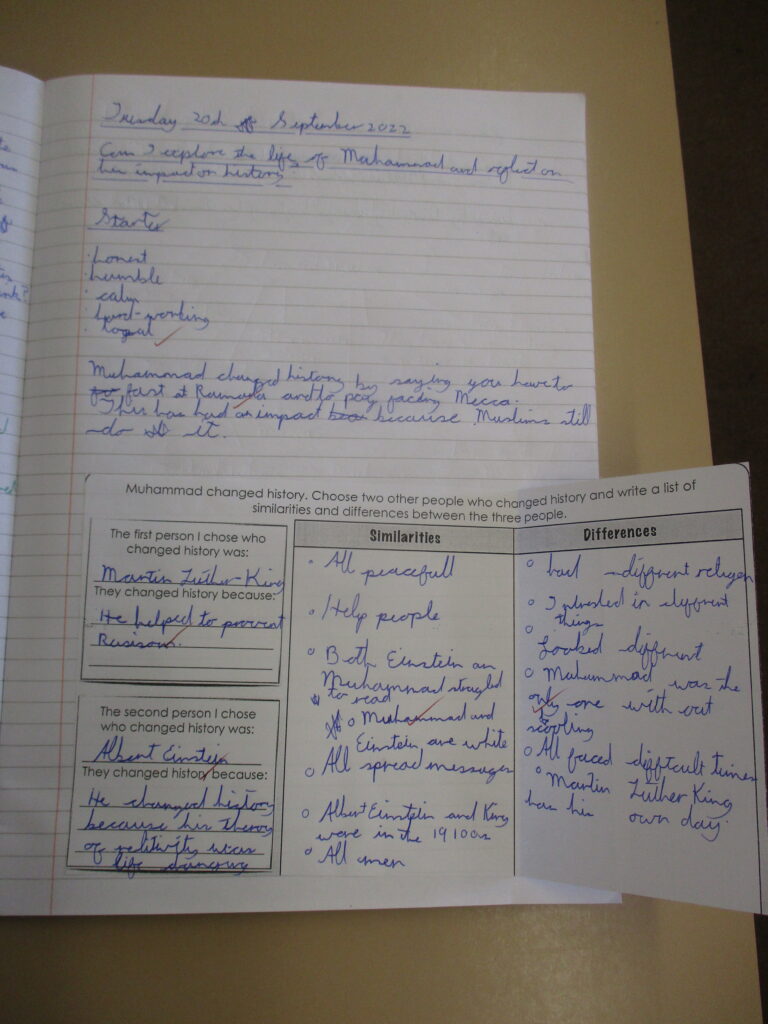 Tuesday 20th of September 2022
Can I explore the life of Muhammad and reflect on
his impact on history
Starter
honest
humble
calm
hard-working
loyal
Muhammad changed history by saying you have to
fast at Ramada and to pray facing Mecca.
This has had an impact because Muslims still
do it.
Muhammad changed history. Choose two other people who changed history and write a list of
similarities and differences between the three people.
The first person I chose who
changed history was:
Martin Luther-King
They changed history because:
He helped to prevent
Rasisom.
The second person I chose
who changed history was:
Albert Einstein
They changed history because:
He changed history
because his theory
of relitivity was
life
Similarities
All peacefull
Help people
Both Einstein an
Muhammad strugled
to read
Muhammad and
Einstein are white
All spread messages
Albert Einstein and King
were in the 19100s
All men
Differences
had different religon
Intrested in different
things
Looked different
Muhammad was the
only one with out
scooling
All faced difftcult times
Martin Luther King
has his own day.